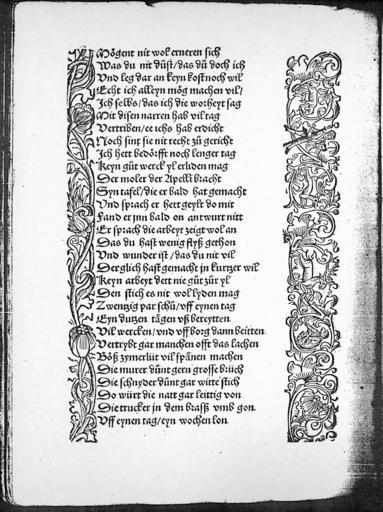 Mögent nit wol erneren sich
Was du nit düst/das dů doch ich
Vnd leg dar an keyn kost noch wil
Echt ich alleyn mög machen vil/
Jch selbs/das ich die worheyt sag
Mit disen narren hab vil tag
Vertriben/ee ichs hab erdicht
Noch sint sie nit recht zů gericht
Jch hett bedörfft noch lenger tag
Keyn gůt werck yl erliden mag
Der moler der Apelli bracht
Syn tafel/die er bald hat gemacht
Vnd sprach er hett geylt do mit
Fand er jnn bald on antwurt nitt
Er sprach die arbeyt zeigt wol an
Das du hast wenig flyß gethon
Vnd wunder ist/das du nit vil
Der glich hast gemacht jn kurtzer wil
Keyn arbeyt dett nie gůt zůr yl
Den stich es nit wol lyden mag
Zwenzig par schů/vff eynen tag
Eyn dutzen tägen vß bereytten
Vil wercken/vnd vff borg dann beitten
Vertrybt gar manchen offt das lachen
Böß zymerlüt vil spänen machen
Die murer důnt gern grosse brüch
Die schnyder důnt gar witte stich
Do würt die natt gar leittig von
Die trucker jn dem braß vmb gon
Vff eynen tag/eyn wochen lon